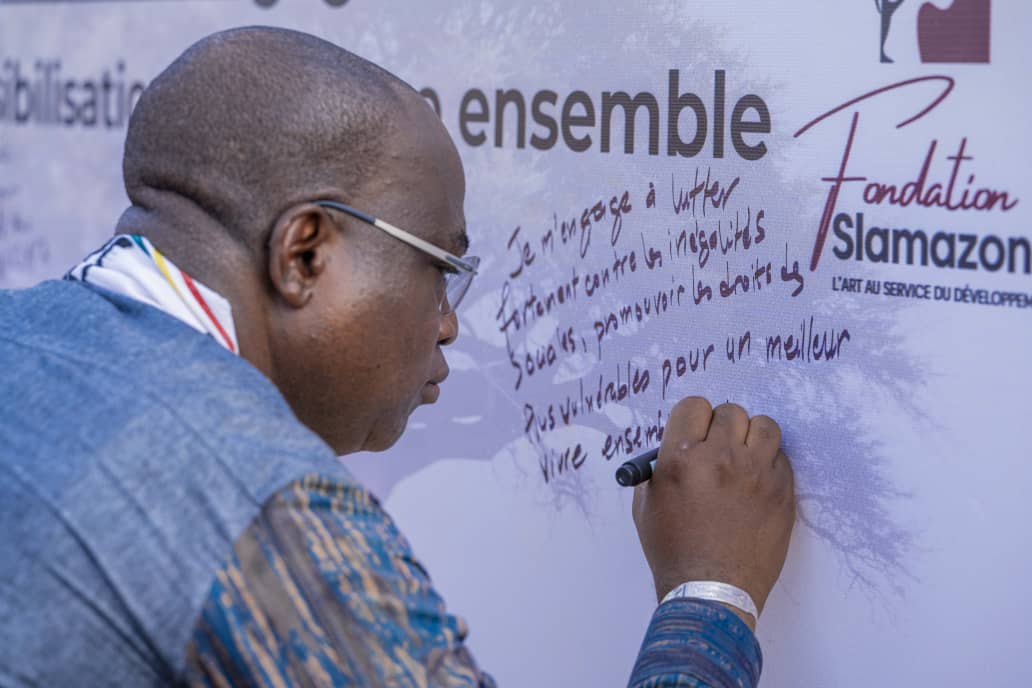 sibilisation
n ensemble
Fondation
Slamazon
L'ART AU SERVICE DU DÉVELOPPEM
Je m'engage à lutter
fortement contre les inégalités
Sociales, promouvoir les droits des
Plus vulnérables pour un meilleur
vivre ensemb